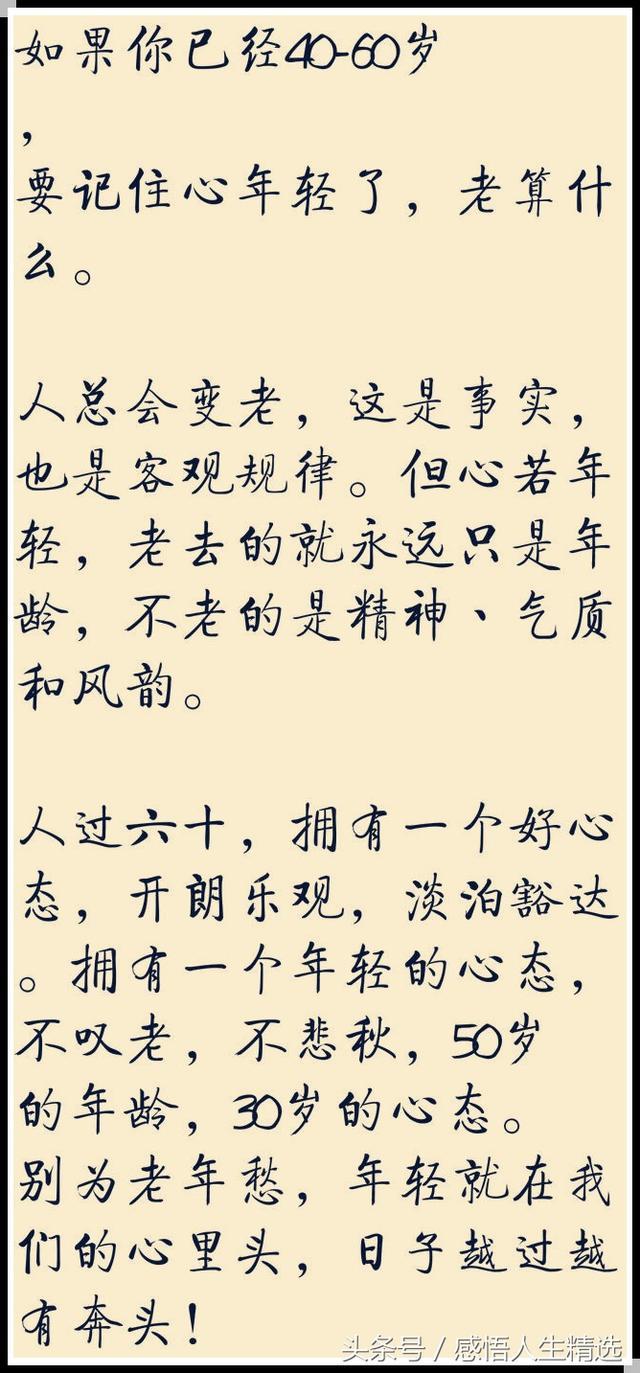 如果你已经40-60岁
，
要记住心年轻了，老算什
么。
人总会变老，这是事实，
也是客观规律。但心若年
轻，老去的就永远只是年
龄，不老的是精神、气质
和风韵。
人过六十，拥有一个好心
态，开朗乐观，淡泊豁达
。拥有一个年轻的心态，
不叹老，不悲秋，50岁
的年龄，30岁的心态。
别为老年愁，年轻就在我
们的心里头，日子越过越
有奔头！
头条号/感悟人生精选